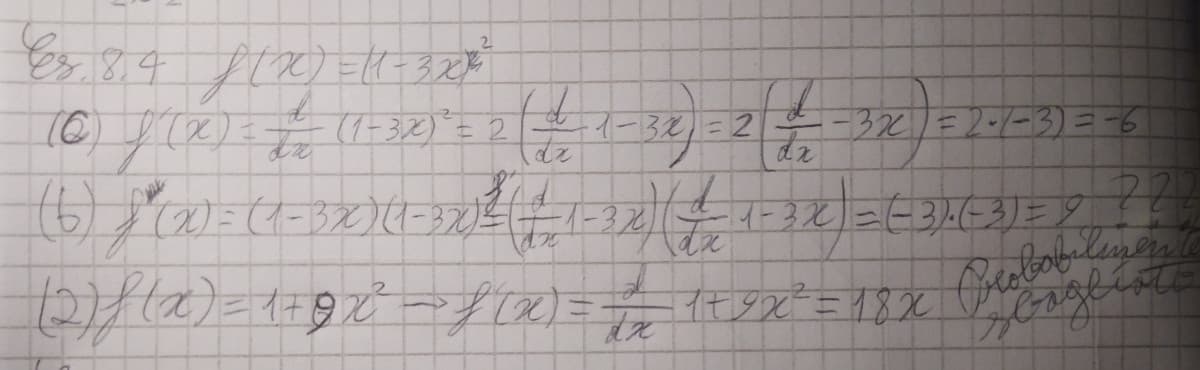 Es. 8.4 f(x) = (1-3x)²
(a) f'(x) = d/dx (1-3x)² = 2(d/dx 1-3x) = 2(d/dx -3x) = 2·(-3) = -6
(b) f(x) = (1-3x)(1-3x) f'= (d/dx 1-3x)(d/dx 1-3x) = (-3)·(-3) = 9 ???
(2) f(x) = 1+9x² → f'(x) = d/dx 1+9x² = 18x (Probabilmente